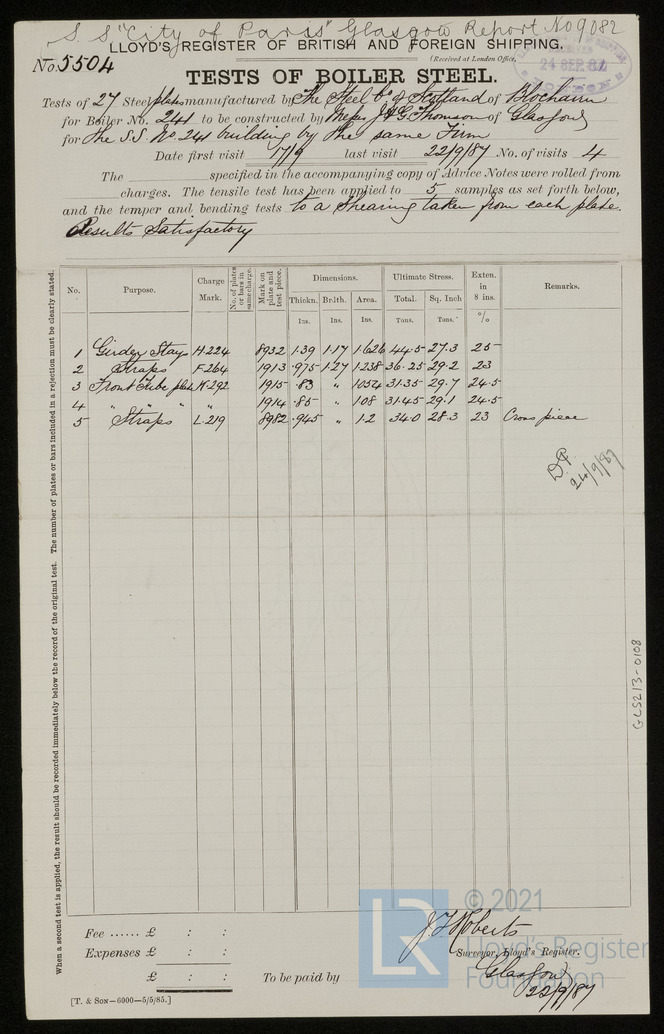 S.S "City of Paris" Glasgow Report No 9082
LLOYD'S REGISTER OF BRITISH AND FOREIGN SHIPPING.
No. 5504
(Received at London Office,
24 SEP. 87
TESTS OF BOILER STEEL.
Tests of 27 Steel plates manufactured by The Steel Co of Scotland of Blochairn
for Boiler No. 241 to be constructed by Messrs J & G Thomson of Glasgow
for The S.S No. 241 building by the same Firm
Date first visit 17/9 last visit 22/9/87 No. of visits 4
The specified in the accompanying copy of Advice Notes were rolled from
charges. The tensile test has been applied to 5 samples as set forth below,
and the temper and bending tests to a Shearing taken from each plate.
Results Satisfactory
No. Purpose. Charge Mark. No. of plates or bars in same charge. Mark on plate and test piece. Dimensions. Ultimate Stress. Exten. in 8 ins. Remarks.
Thickn. Brdth. Area. Total. Sq. Inch
Ins. Ins. Ins. Tons. Tons. %
1 Girder Stays H.224 8932 1.39 1.17 1.626 44.5 27.3 25
2 Straps F.264 1913 .975 1.27 1.238 36.25 29.2 23
3 Front tube plate H.292 1915 .83 " 1054 31.35 29.7 24.5
4 " " " " 1914 .85 " 108 31.45 29.1 24.5
5 Straps L.219 8982 .945 " 1.2 34.0 28.3 23 Cross piece
D.P.
24/9/87
When a second test is applied, the result should be recorded immediately below the record of the original test. The number of plates or bars included in a rejection must be clearly stated.
GLS213-0108
Fee ...... £ : :
Expenses £ : :
£ : : To be paid by
J.F. Roberts
Surveyor, Lloyd's Register.
Glasgow
22/9/87
[T. & SON—6000—5/5/85.]
LR
© 2021
Lloyd's Register
Foundation